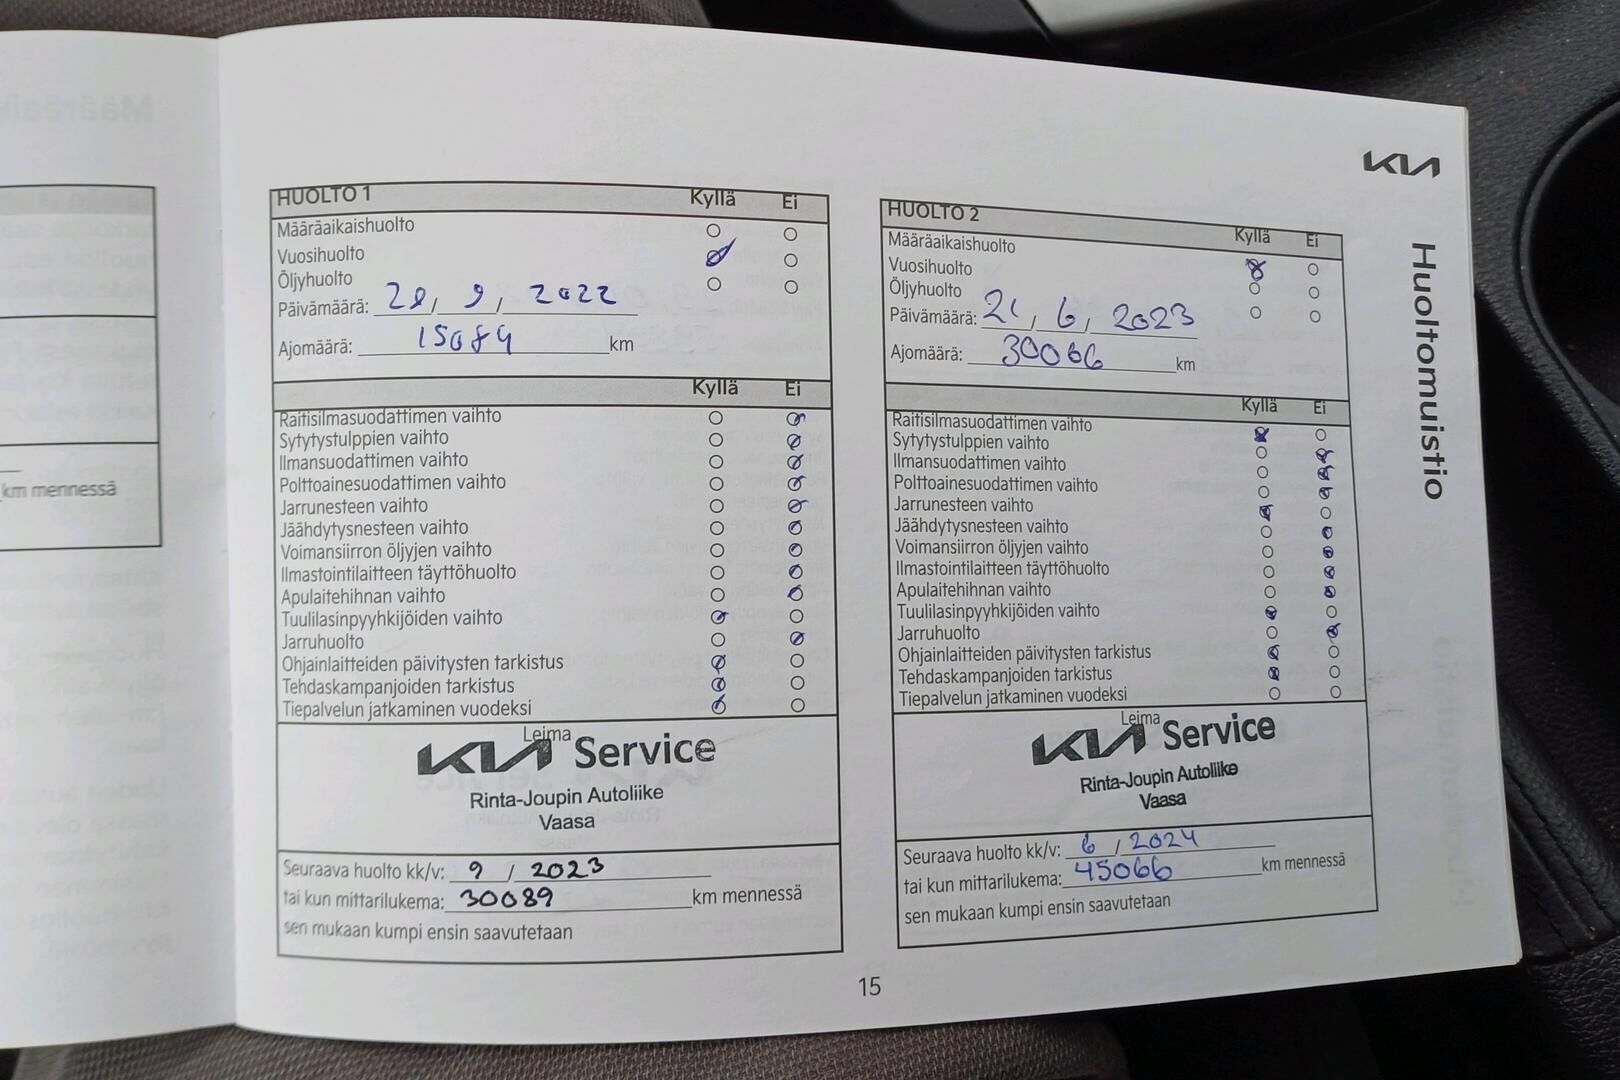 km mennessä
KIA
Huoltomuistio
HUOLTO 1 Kyllä Ei
Määräaikaishuolto
Vuosihuolto
Öljyhuolto
Päivämäärä: 9, 2022
Ajomäärä: 15089 km
Kyllä Ei
Raitisilmasuodattimen vaihto
Sytytystulppien vaihto
Ilmansuodattimen vaihto
Polttoainesuodattimen vaihto
Jarrunesteen vaihto
Jäähdytysnesteen vaihto
Voimansiirron öljyjen vaihto
Ilmastointilaitteen täyttöhuolto
Apulaitehihnan vaihto
Tuulilasinpyyhkijöiden vaihto
Jarruhuolto
Ohjainlaitteiden päivitysten tarkistus
Tehdaskampanjoiden tarkistus
Tiepalvelun jatkaminen vuodeksi
Leima
KIA Service
Rinta-Joupin Autoliike
Vaasa
Seuraava huolto kk/v: 9 / 2023
tai kun mittarilukema: 30089 km mennessä
sen mukaan kumpi ensin saavutetaan
HUOLTO 2 Kyllä Ei
Määräaikaishuolto
Vuosihuolto
Öljyhuolto
Päivämäärä: 21, 6, 2023
Ajomäärä: 30066 km
Kyllä Ei
Raitisilmasuodattimen vaihto
Sytytystulppien vaihto
Ilmansuodattimen vaihto
Polttoainesuodattimen vaihto
Jarrunesteen vaihto
Jäähdytysnesteen vaihto
Voimansiirron öljyjen vaihto
Ilmastointilaitteen täyttöhuolto
Apulaitehihnan vaihto
Tuulilasinpyyhkijöiden vaihto
Jarruhuolto
Ohjainlaitteiden päivitysten tarkistus
Tehdaskampanjoiden tarkistus
Tiepalvelun jatkaminen vuodeksi
Leima
KIA Service
Rinta-Joupin Autoliike
Vaasa
Seuraava huolto kk/v: 6 / 2024
tai kun mittarilukema: 45066 km mennessä
sen mukaan kumpi ensin saavutetaan
15